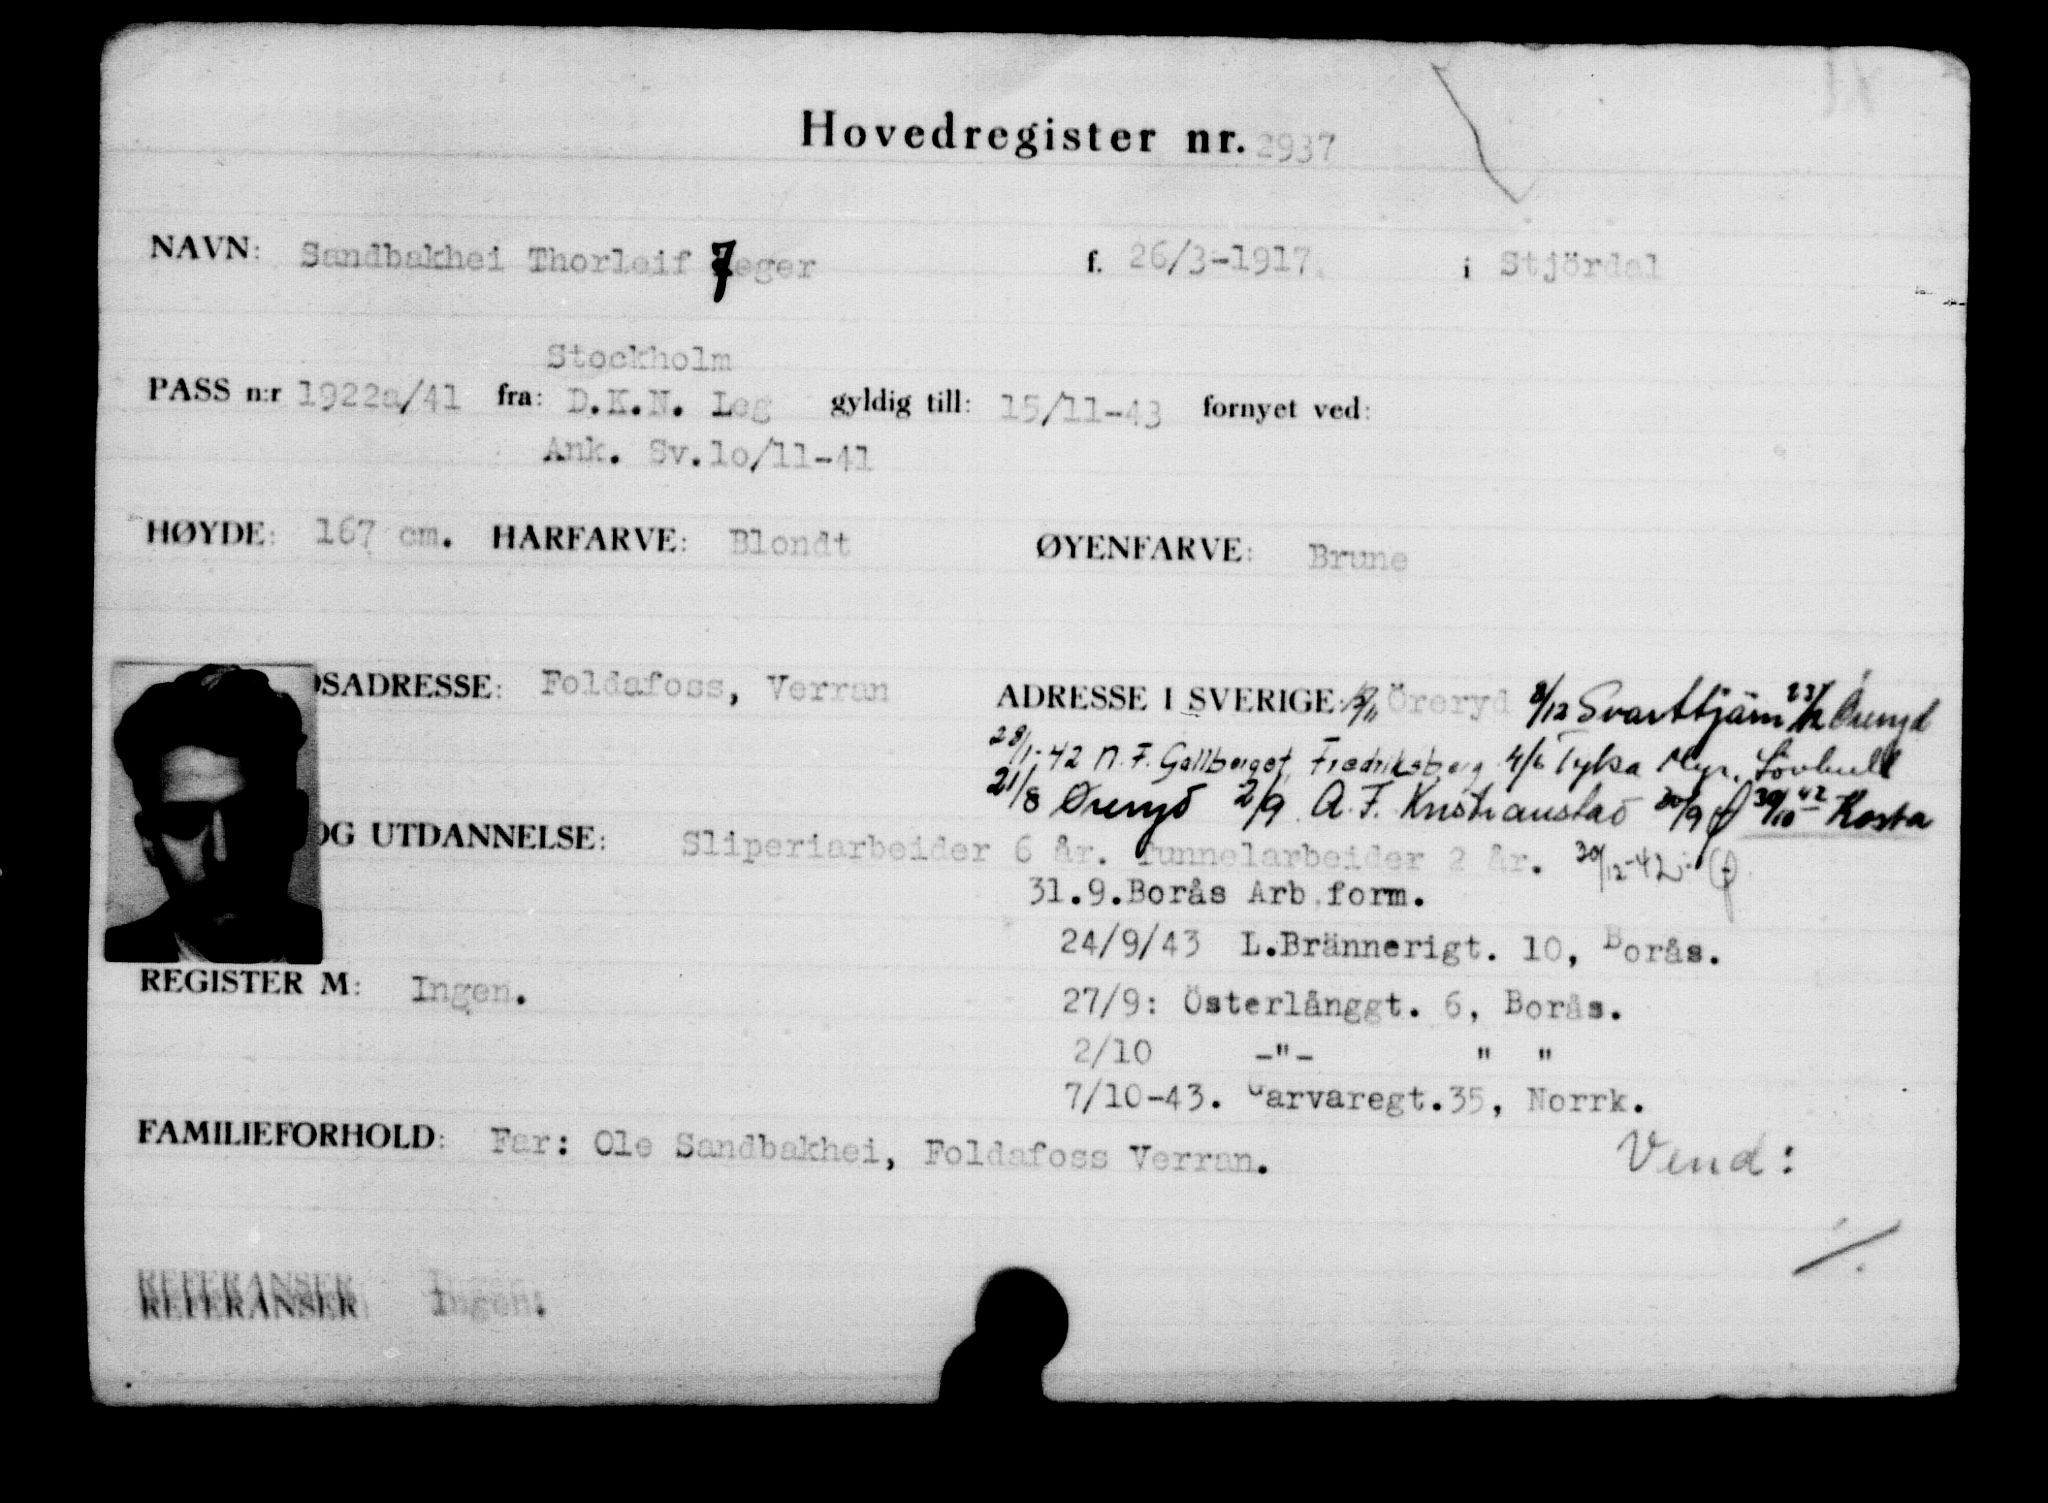 Hovedregister nr. 2937
NAVN: Sandbakhei Thorleif Jeger f. 26/3-1917. i Stjördal
Stockholm
PASS n:r 1922a/41 fra: D.K.N. Leg gyldig till: 15/11-43 fornyet ved:
Ank. Sv.lo/11-41
HØYDE: 167 cm. HÅRFARVE: Blondt ØYENFARVE: Brune
DSADRESSE: Foldafoss, Verran ADRESSE I SVERIGE: Öreryd 8/12 Svarttjärn Öreryd
28/1-42 N.F. Gallberget, Fredriksberg 4/6 Tyka Myr, Lövhult
21/8 Öreryd 2/9 A.F. Kristianstad 30/9 30/10 42 Kosta
OG UTDANNELSE: Sliperiarbeider 6 år. Tunnelarbeider 2 år. 30/12-42
31.9.Borås Arb.form.
24/9/43 L.Brännerigt. 10, Borås.
REGISTER M: Ingen.
27/9: Österlånggt. 6, Borås.
2/10 -"- " "
7/10-43. Garvaregt.35, Norrk.
FAMILIEFORHOLD: Far: Ole Sandbakhei, Foldafoss Verran.
Vend:
./.
REFERANSER Ingen.